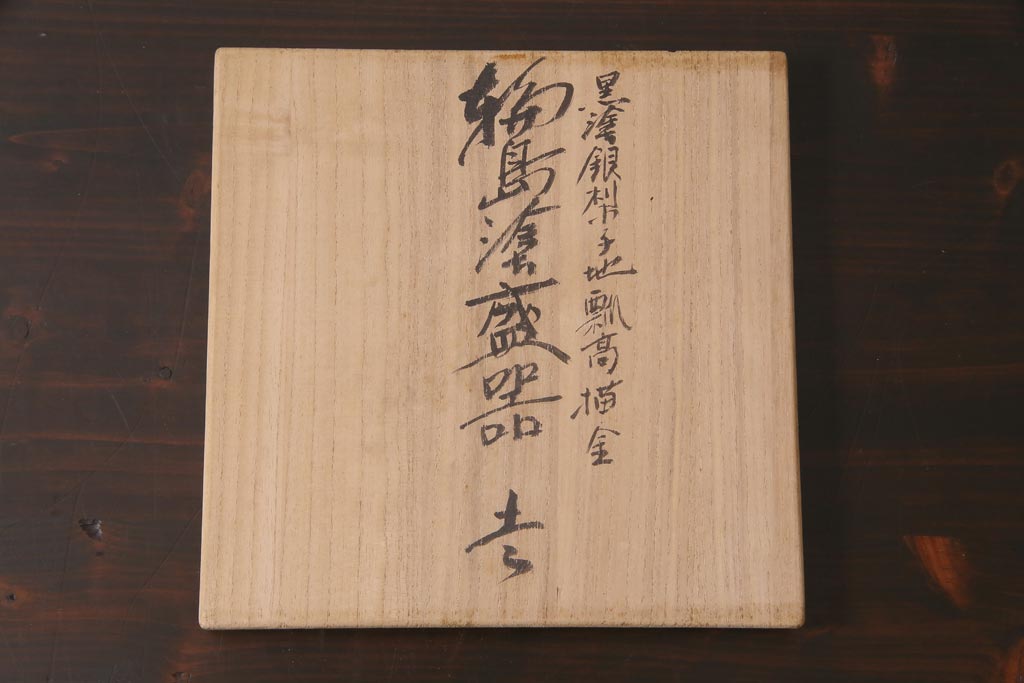 黒塗銀梨子地瓢高描金
輪島塗盛器 壱